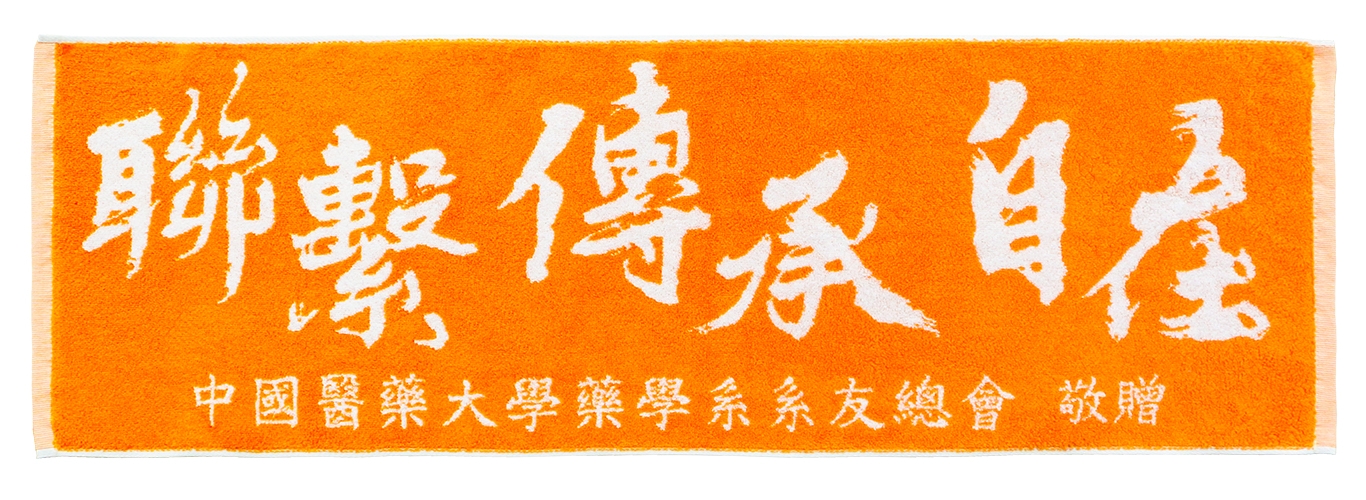 聯繫 傳承 自在
中國醫藥大學藥學系系友總會 敬贈